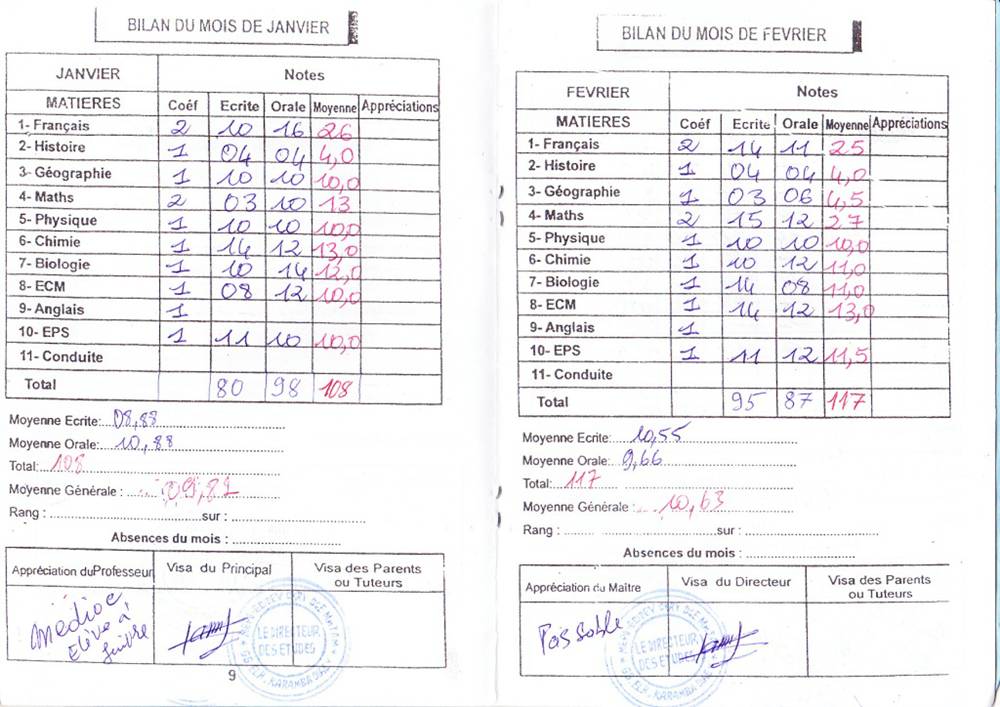 BILAN DU MOIS DE JANVIER
JANVIER Notes
MATIERES Coéf Ecrite Orale Moyenne Appréciations
1- Français 2 10 16 26
2- Histoire 1 04 04 4,0
3- Géographie 1 10 10 10,0
4- Maths 2 03 10 13
5- Physique 1 10 10 10,0
6- Chimie 1 14 12 13,0
7- Biologie 1 10 14 12,0
8- ECM 1 08 12 10,0
9- Anglais 1
10- EPS 1 11 10 10,0
11- Conduite
Total 80 98 108
Moyenne Ecrite: 08,88
Moyenne Orale: 10,88
Total: 108
Moyenne Générale : 09,81
Rang : sur :
Absences du mois :
Appréciation du Professeur Visa du Principal Visa des Parents ou Tuteurs
Médioc
Elève à
Suivre
LE DIRECTEUR
DES ETUDES
9
BILAN DU MOIS DE FEVRIER
FEVRIER Notes
MATIERES Coéf Ecrite Orale Moyenne Appréciations
1- Français 2 14 11 25
2- Histoire 1 04 04 4,0
3- Géographie 1 03 06 4,5
4- Maths 2 15 12 27
5- Physique 1 10 10 10,0
6- Chimie 1 10 12 11,0
7- Biologie 1 14 08 11,0
8- ECM 1 14 12 13,0
9- Anglais 1
10- EPS 1 11 12 11,5
11- Conduite
Total 95 87 117
Moyenne Ecrite: 10,55
Moyenne Orale: 9,66
Total: 117
Moyenne Générale : 10,63
Rang : sur :
Absences du mois :
Appréciation du Maitre Visa du Directeur Visa des Parents ou Tuteurs
Passable
LE DIRECTEUR
DES ETUDES